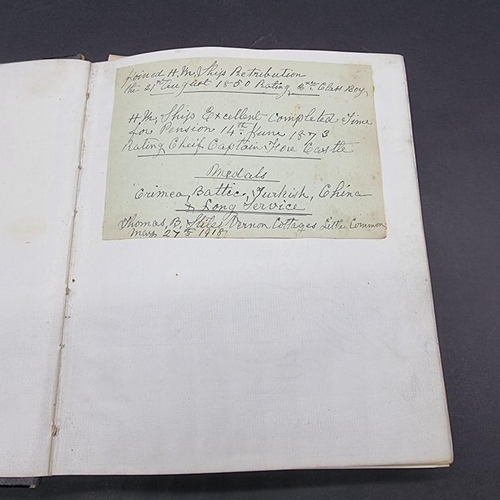 Joined H.M. Ship Retribution
the 21st August 1850 Rating 2nd Class Boy
H.M. Ships Excellent Completed Time
for Pension 14th June 1873
Rating Cheif Captain Fore Castle
Medals
Crimea, Baltic, Turkish, China
& Long Service
Thomas, B. Stiles Vernon Cottages Little Common
May 27th 1918